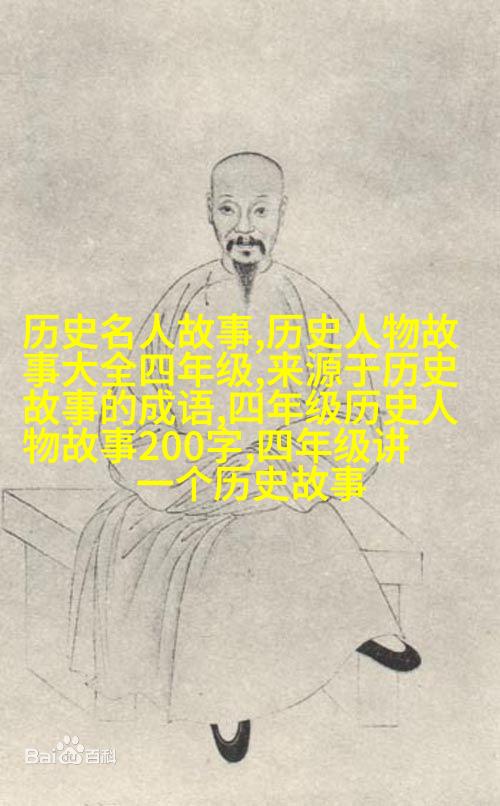 历史名人故事,历史人物故
事大全四年级,来源于历史
故事的成语,四年级历史人
物故事200字,四年级讲
一个历史故事
Bai du 百科